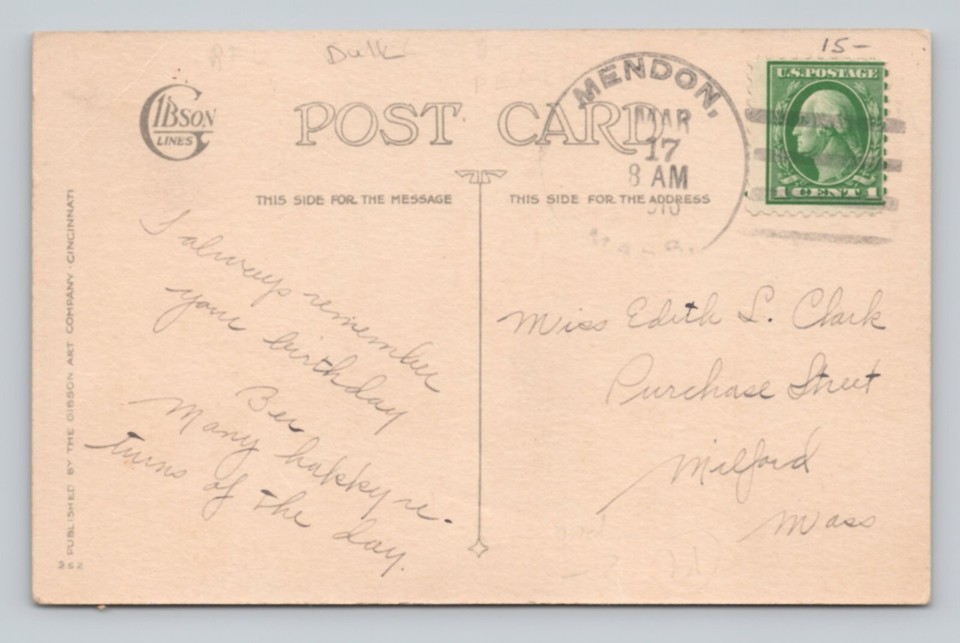 15-
Dulk
GIBSON
LINES
POST CARD
MENDON,
MAR
17
8 AM
U.S. POSTAGE
1 CENT 1
THIS SIDE FOR THE MESSAGE
THIS SIDE FOR THE ADDRESS
I always remember
your birthday
Bee
Many happy re-
turns of the day.
Miss Edith L. Clark
Purchase Street
Milford
Mass
PUBLISHED BY THE GIBSON ART COMPANY · CINCINNATI
362